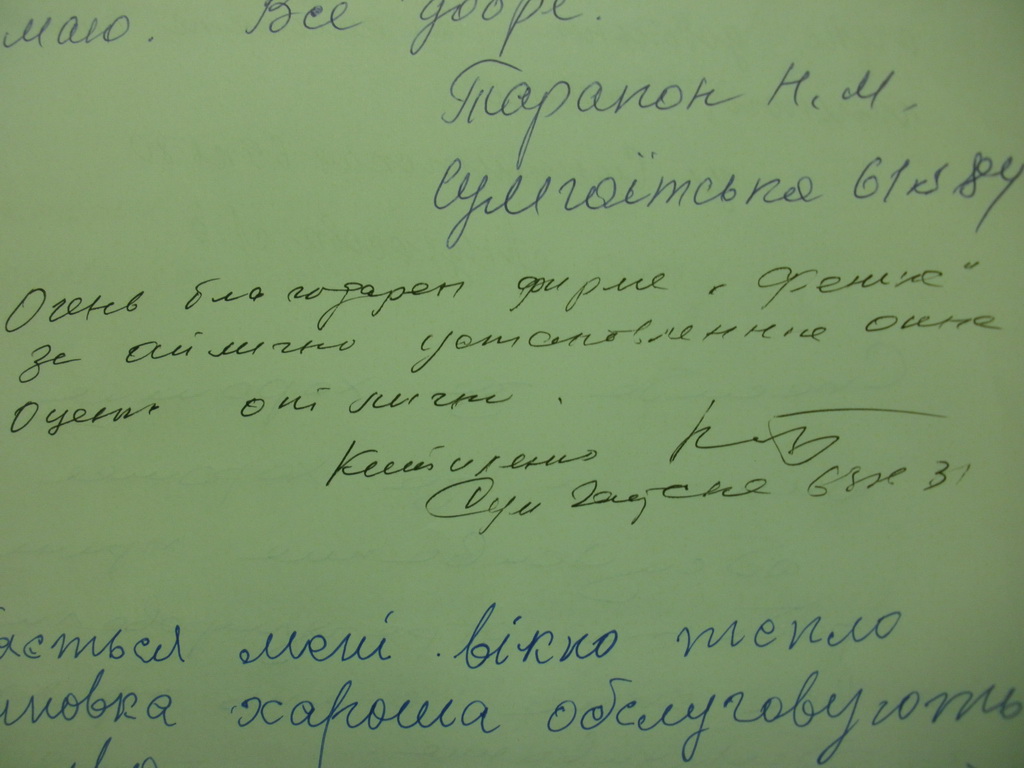 маю. Все добре.
Тарапон Н.М.
Сумгаїтська 61 кв 84
Очень благодарен фирме „Феникс"
за отлично установленные окна
Оценка отлично.
Сумгаитская 63 кв 31
ається мені вікно тепло
ановка хароша обслуговують